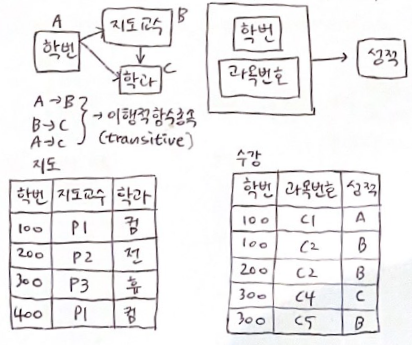 A
B
학번
지도교수
학과
C
학번
과목번호
성적
A→B
B→C
A→C
→ 이행적함수종속
(transitive)
지도
학번 지도교수 학과
100 P1 컴
200 P2 전
300 P3 휴
400 P1 컴
수강
학번 과목번호 성적
100 C1 A
100 C2 B
200 C2 B
300 C4 C
300 C5 B